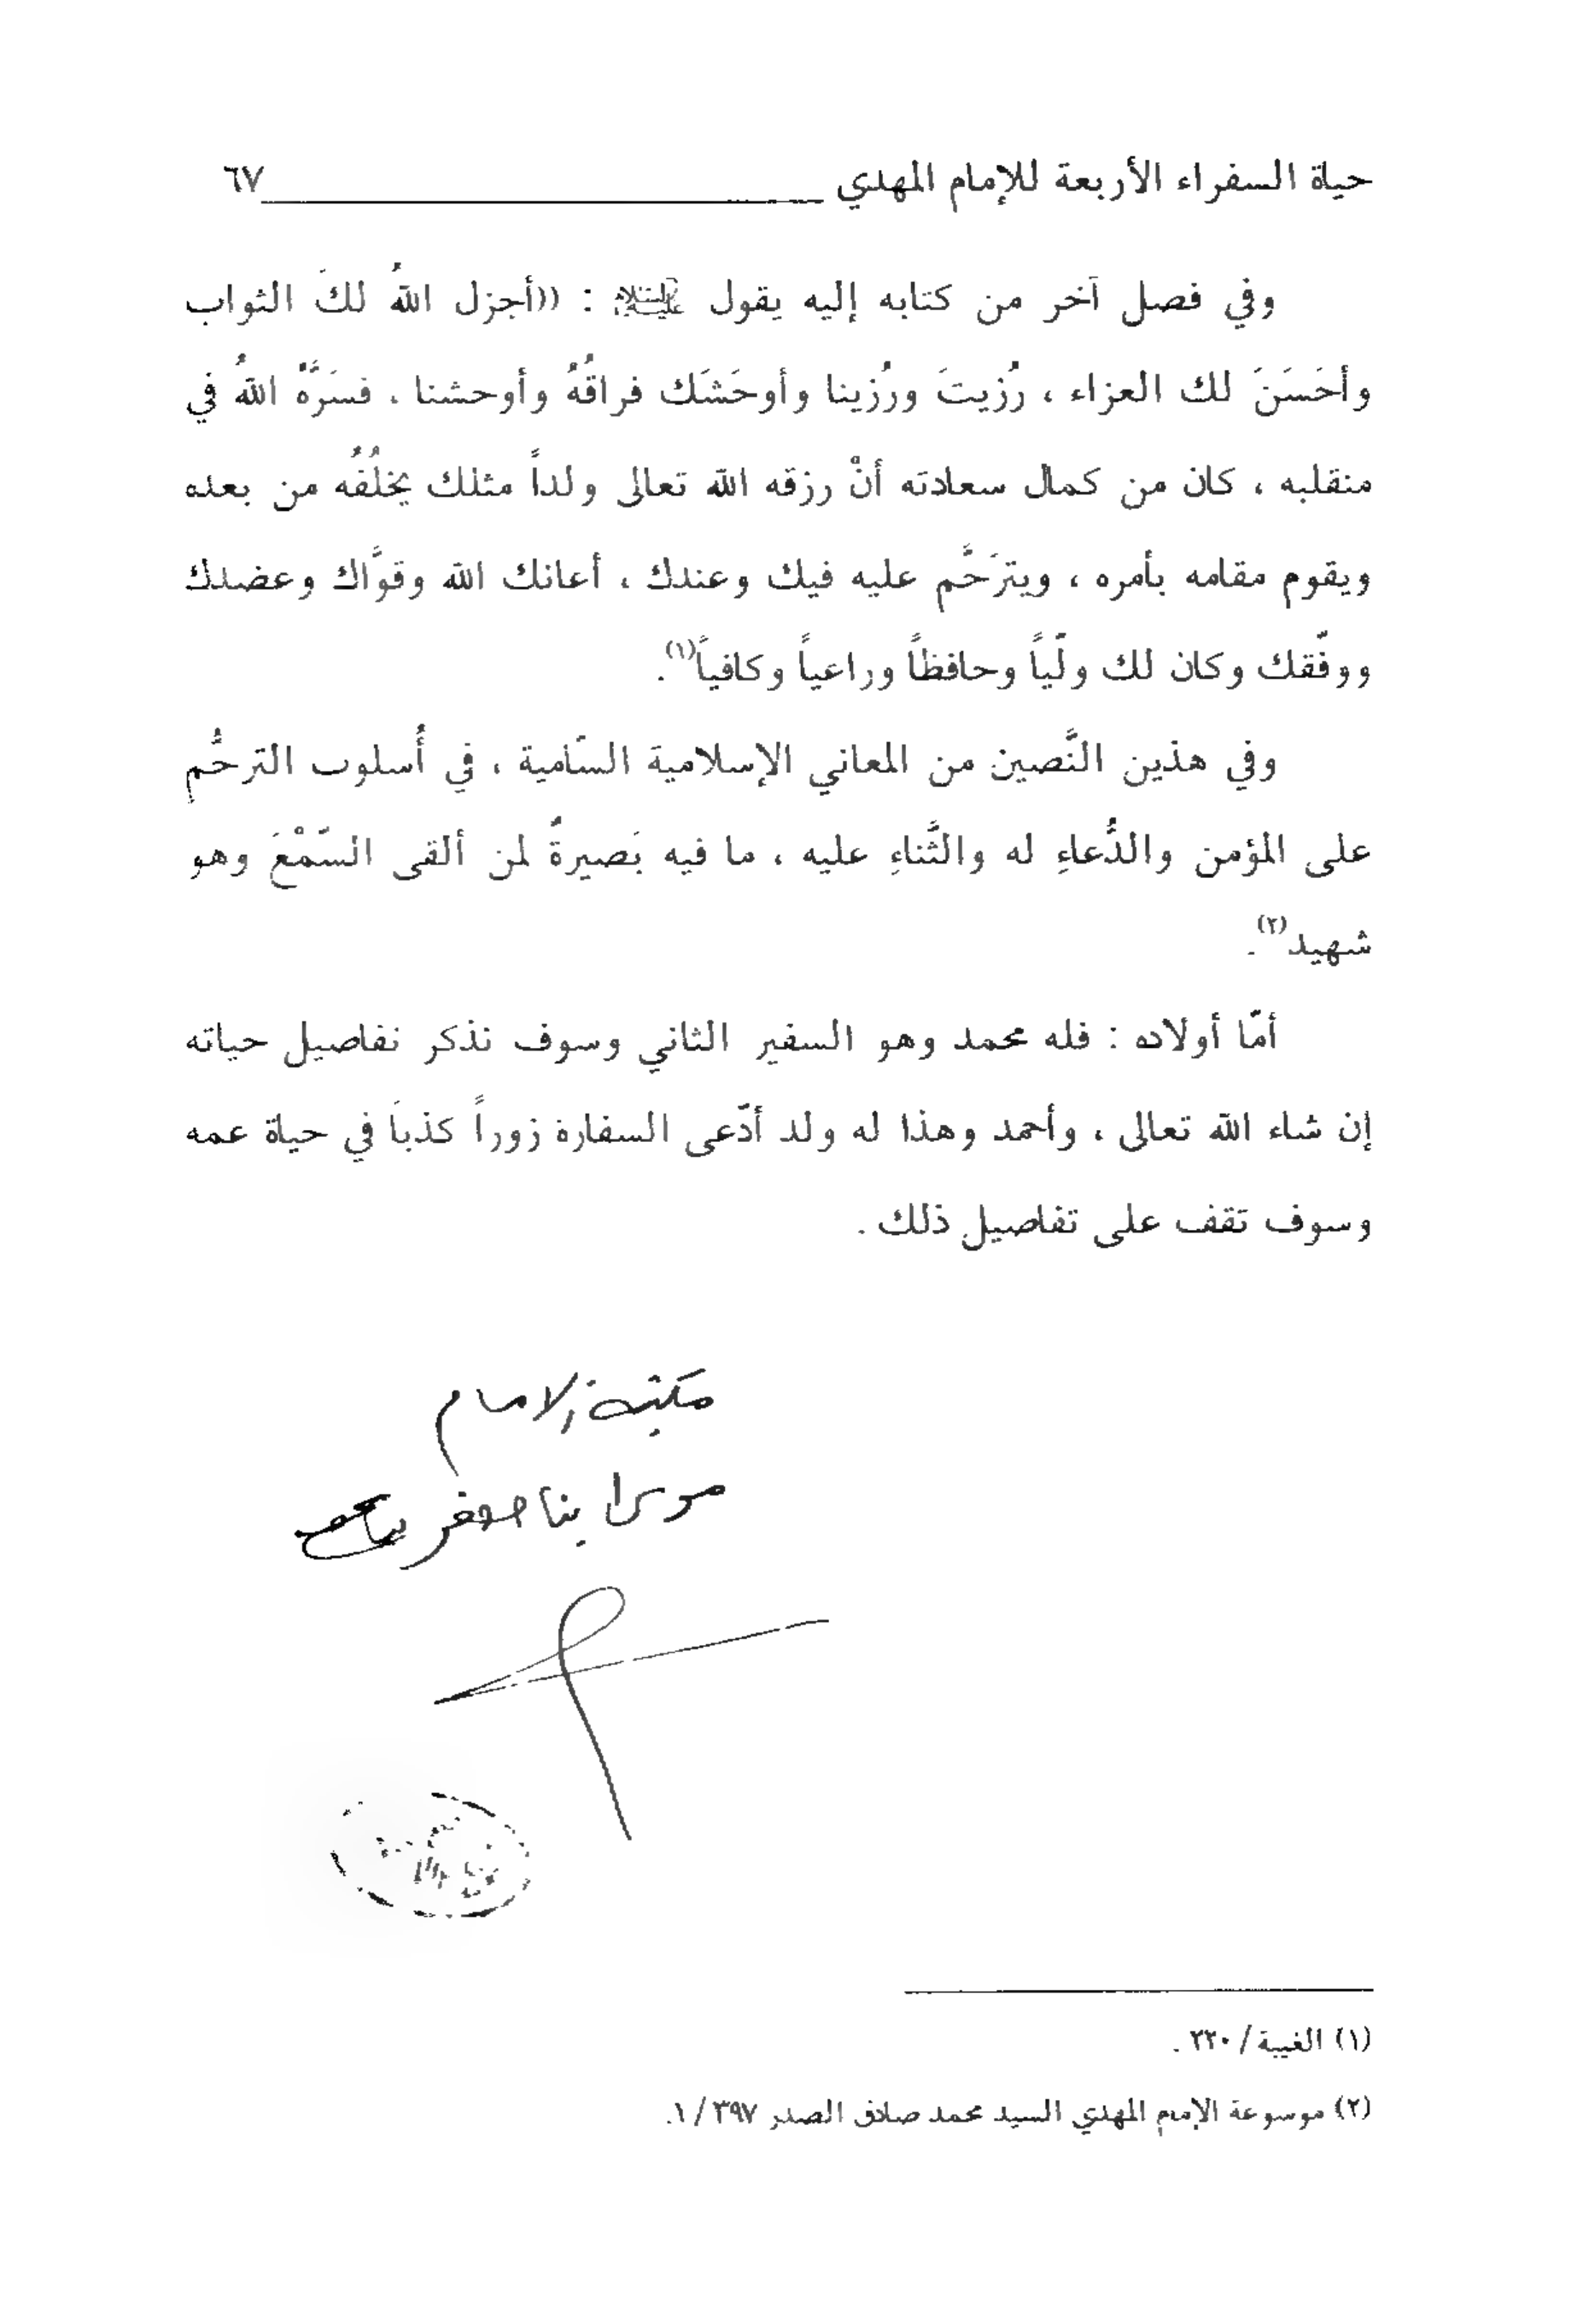 حياة السفراء الأربعة للإمام المهدي ٦٧
وفي فصل آخر من كتابه إليه يقول عليه السلام : ((أجزل اللهُ لكَ الثواب
وأحَسَنَ لك العزاء ، رُزيتَ ورُزينا وأوحَشَك فراقُهُ وأوحشنا ، فسَرَّهُ اللهُ في
منقلبه ، كان من كمال سعادته أنْ رزقه الله تعالى ولداً مثلك يخلُفُه من بعده
ويقوم مقامه بأمره ، ويترَحَّم عليه فيك وعندك ، أعانك الله وقوَّاك وعضدك
ووفّقك وكان لك ولّياً وحافظاً وراعياً وكافياً(١).
وفي هذين النَّصين من المعاني الإسلامية السّامية ، في أُسلوب الترحُّمِ
على المؤمن والدُّعاءِ له والثَّناءِ عليه ، ما فيه بَصيرةٌ لمن ألقى السّمْعَ وهو
شهيد(٢).
أمّا أولاده : فله محمد وهو السفير الثاني وسوف نذكر نفاصيل حياته
إن شاء الله تعالى ، وأحمد وهذا له ولد أدّعى السفارة زوراً كذباً في حياة عمه
وسوف تقف على تفاصيل ذلك .
مكتبة الامام
موسى بن جعفر
(١) الغيبة / ٢٢٠ .
(٢) موسوعة الإمام المهدي السيد محمد صادق الصدر ٣٩٧ / ١.